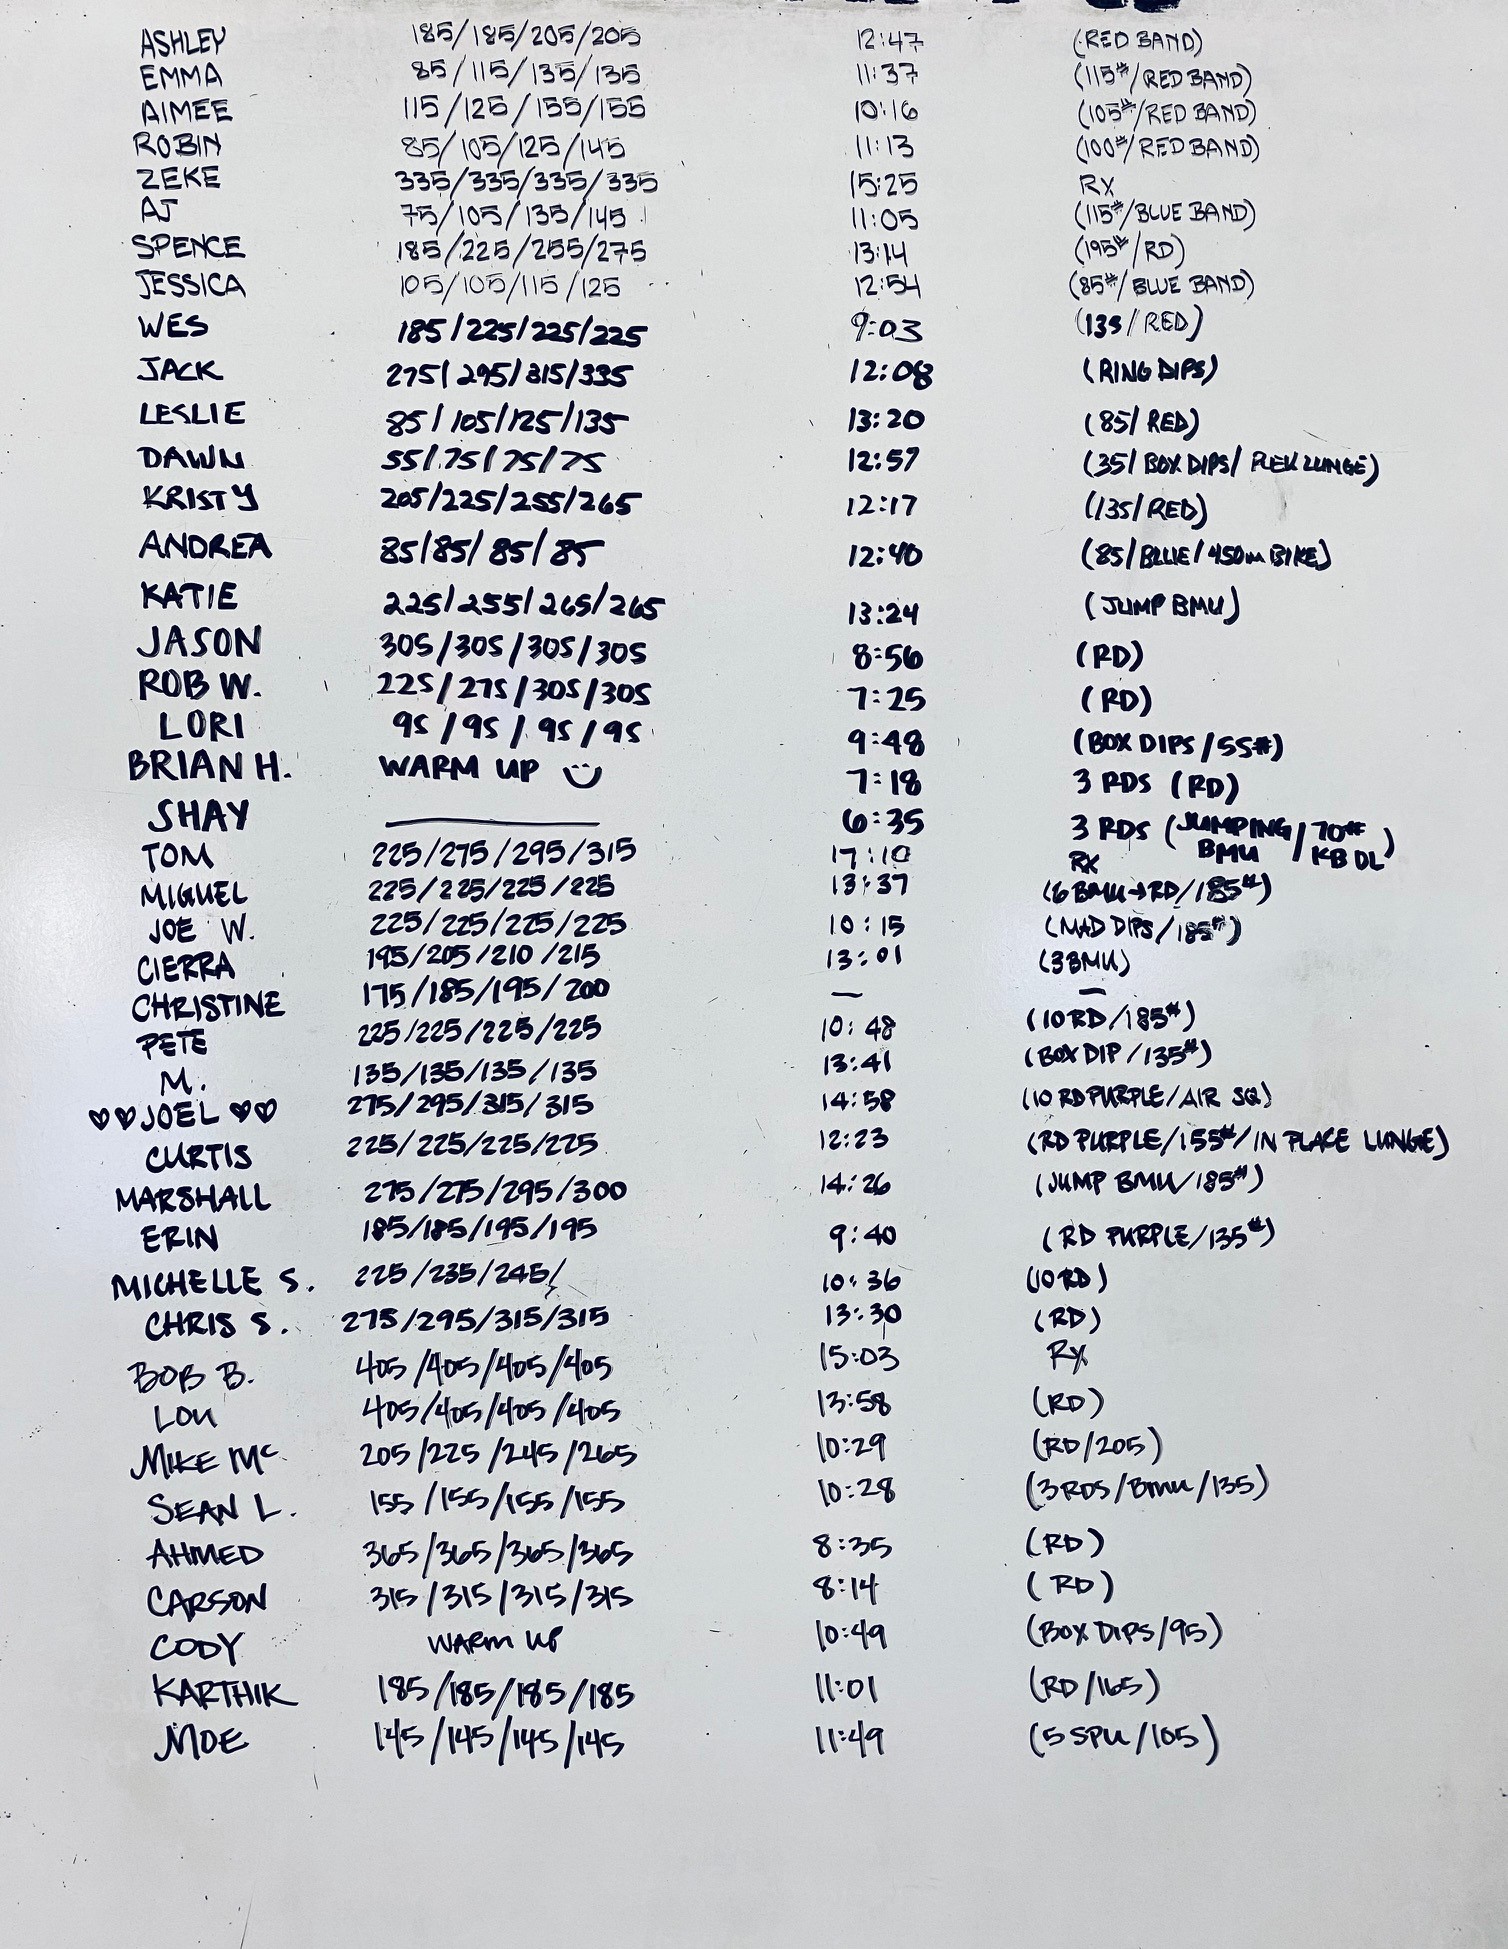 ASHLEY 185/185/205/205 12:47 (RED BAND)
EMMA 85/115/135/135 11:37 (115#/RED BAND)
AIMEE 115/125/155/155 10:16 (105#/RED BAND)
ROBIN 85/105/125/145 11:13 (100#/RED BAND)
ZEKE 335/335/335/335 15:25 RX
AJ 75/105/135/145 11:05 (115#/BLUE BAND)
SPENCE 185/225/255/275 13:14 (195#/RD)
JESSICA 105/105/115/125 12:54 (85#/BLUE BAND)
WES 185/225/225/225 9:03 (135/RED)
JACK 275/295/315/335 12:08 (RING DIPS)
LESLIE 85/105/125/135 13:20 (85/RED)
DAWN 55/75/75/75 12:57 (35/BOX DIPS/ LUNGE)
KRISTY 205/225/255/265 12:17 (135/RED)
ANDREA 85/85/85/85 12:40 (85/BLUE/450m BIKE)
KATIE 225/255/265/265 13:24 (JUMP BMU)
JASON 305/305/305/305 8:56 (RD)
ROB W. 225/275/305/305 7:25 (RD)
LORI 95/95/95/95 9:48 (BOX DIPS/55#)
BRIAN H. WARM UP 7:18 3 RDS (RD)
SHAY — 6:35 3 RDS (JUMPING BMU/70# KB DL)
TOM 225/275/295/315 17:10 RX
MIGUEL 225/225/225/225 13:37 (6 BMU→RD/185#)
JOE W. 225/225/225/225 10:15 (MAD DIPS/185#)
CIERRA 195/205/210/215 13:01 (3BMU)
CHRISTINE 175/185/195/200 — —
PETE 225/225/225/225 10:48 (10RD/185#)
M. 135/135/135/135 13:41 (BOX DIP/135#)
♡♡JOEL♡♡ 275/295/315/315 14:58 (10 RD PURPLE/AIR SQ)
CURTIS 225/225/225/225 12:23 (RD PURPLE/155#/IN PLACE LUNGE)
MARSHALL 275/275/295/300 14:26 (JUMP BMU/185#)
ERIN 185/185/195/195 9:40 (RD PURPLE/135#)
MICHELLE S. 225/235/245/ 10:36 (10RD)
CHRIS S. 275/295/315/315 13:30 (RD)
BOB B. 405/405/405/405 15:03 RX
LOU 405/405/405/405 13:58 (RD)
MIKE Mc 205/225/245/265 10:29 (RD/205)
SEAN L. 155/155/155/155 10:28 (3RDS/Bmu/135)
AHMED 365/365/365/365 8:35 (RD)
CARSON 315/315/315/315 8:14 (RD)
CODY WARM UP 10:49 (BOX DIPS/95)
KARTHIK 185/185/185/185 11:01 (RD/165)
MOE 145/145/145/145 11:49 (5 SPU/105)